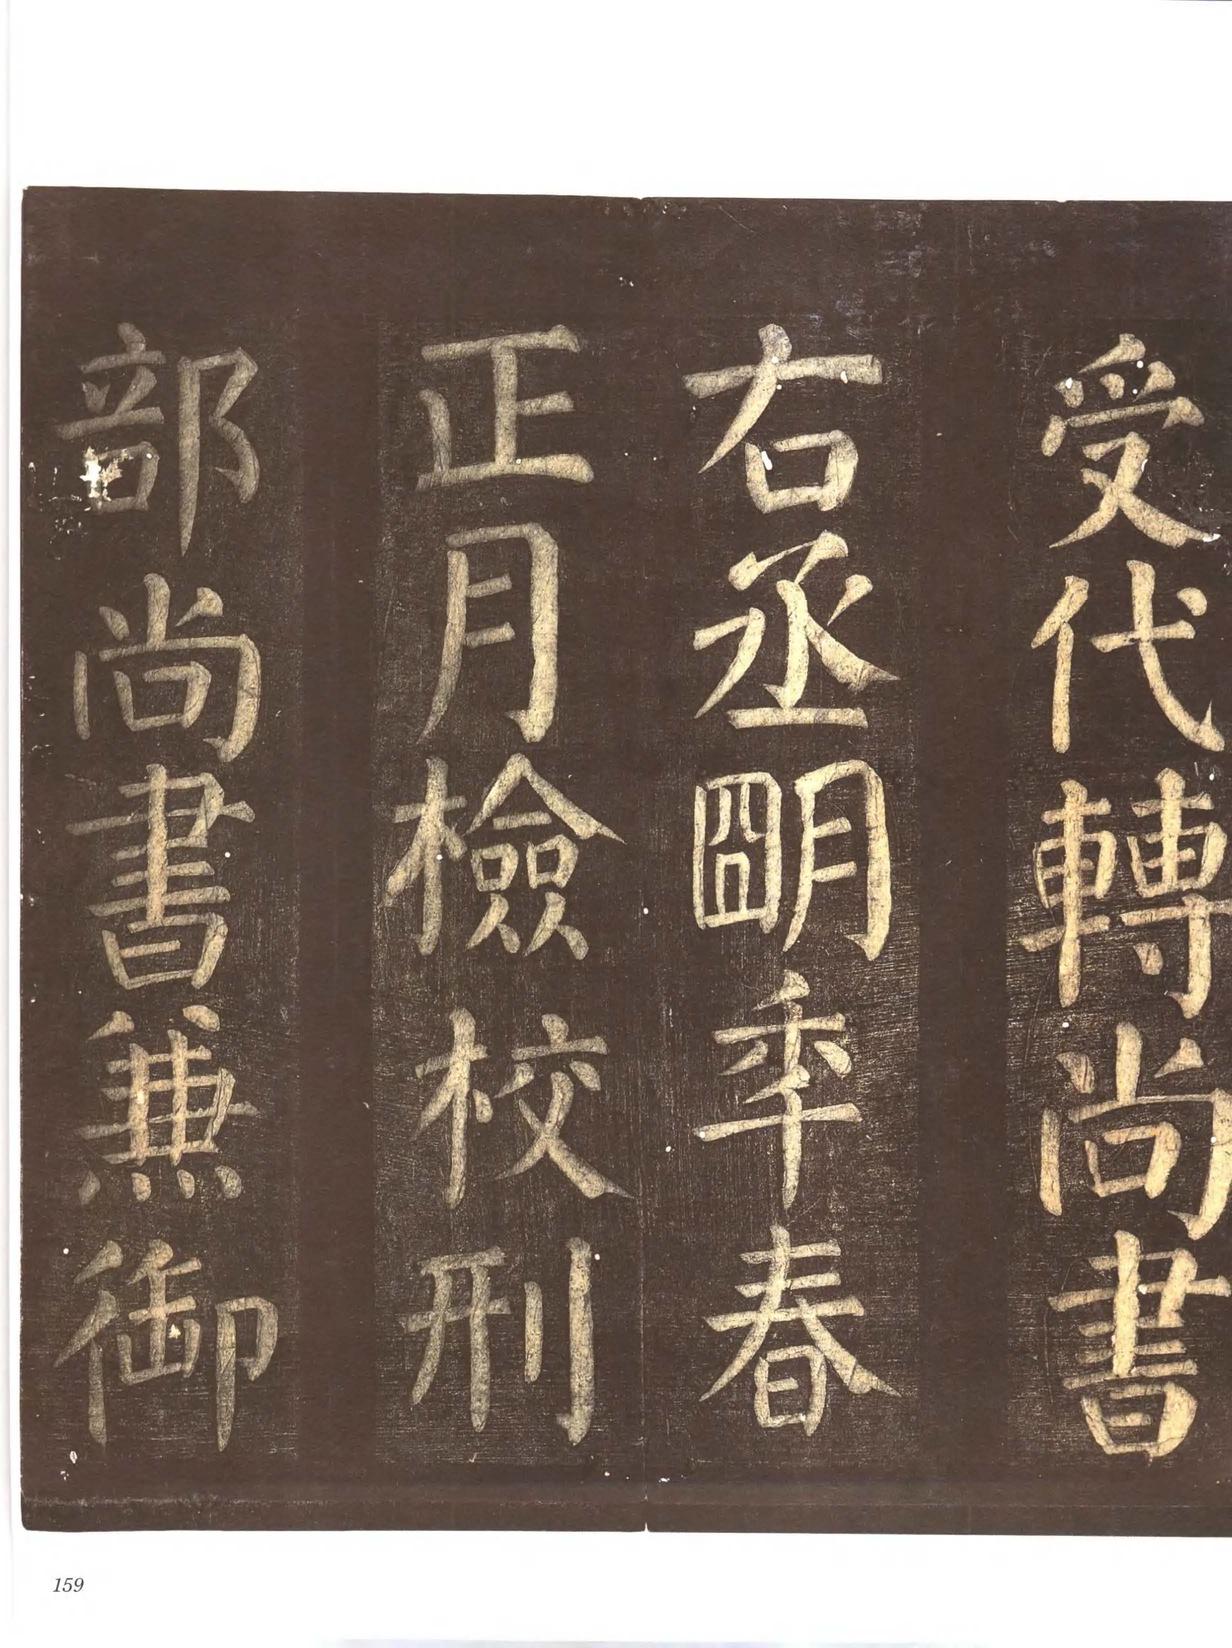 受代轉尚書
右丞明年春
正月檢校刑
部尚書兼御
159